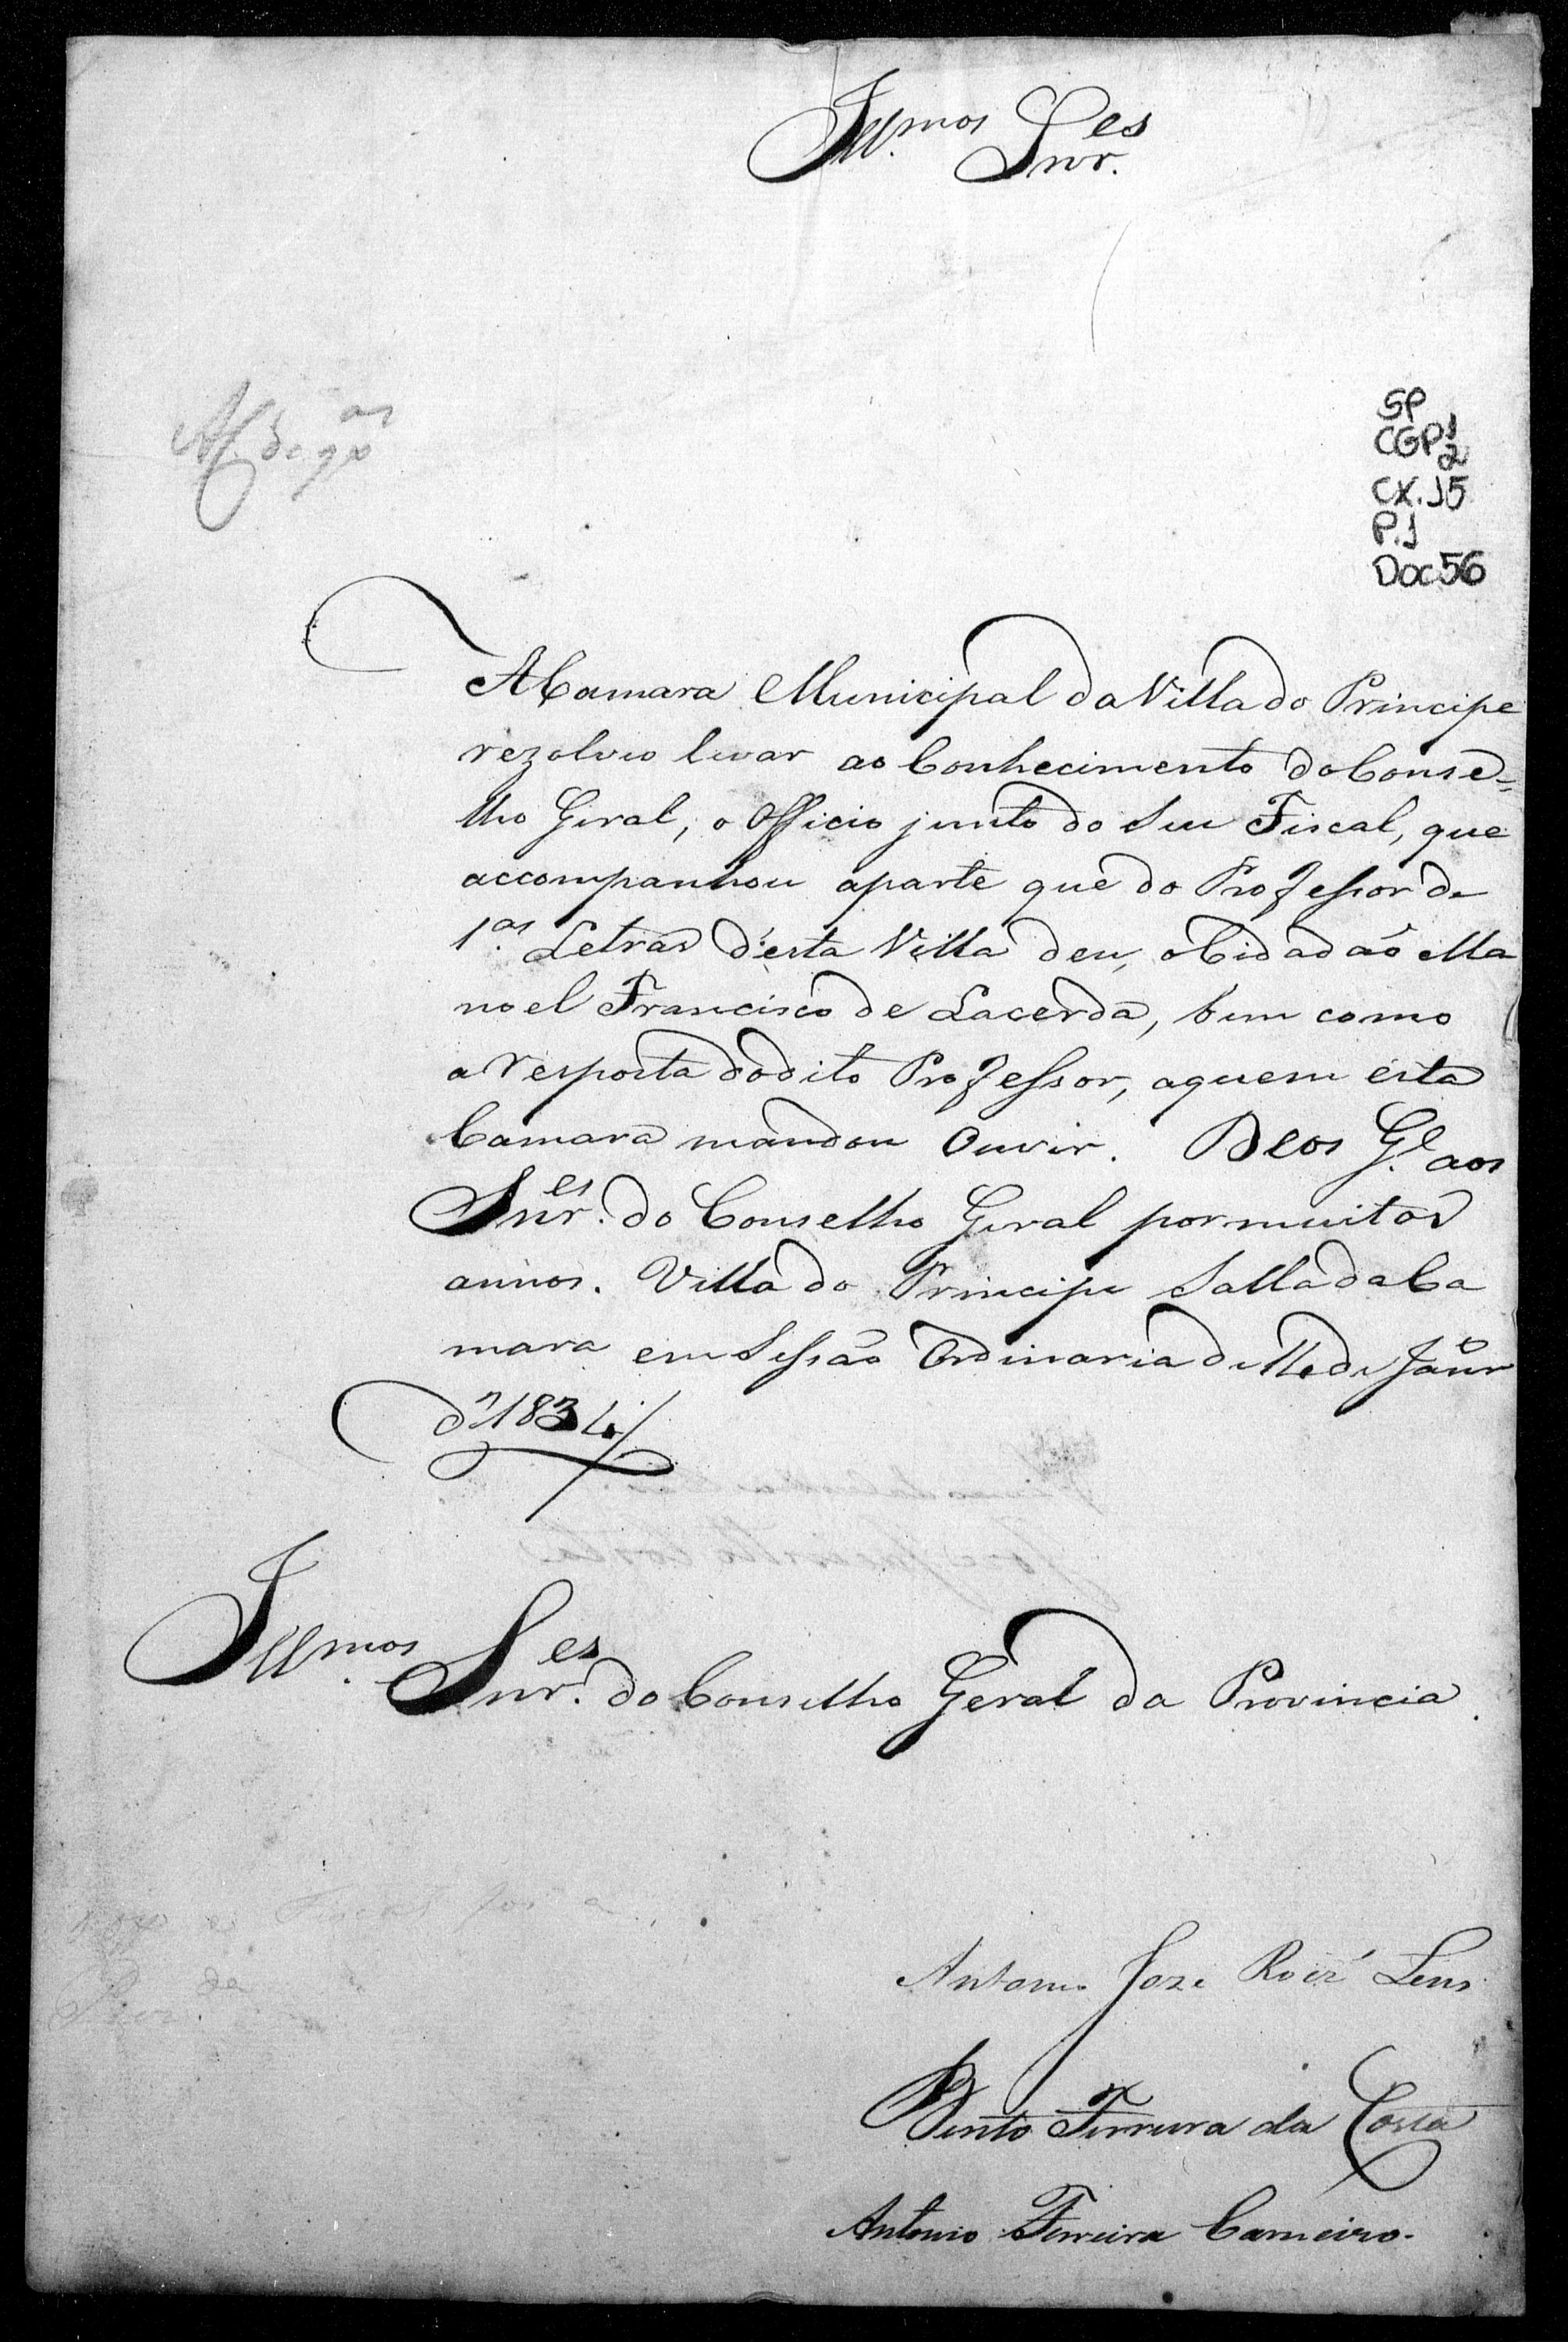 Ill.mos Snr.es
SP
CGP 1
2
CX. 15
P.1
Doc 56
A Camara Municipal da Villa do Principe
rezolveo levar ao Conhecimento do Conse=
lho Geral, o Officio junto do Seu Fiscal, que
accompanhou aparte que do Professor de
1.as Letras d'esta Villa deu, o Cidadaõ Ma
noel Francisco de Lacerda, bem como
a resposta do dito Professor, aquem esta
Camara mandou Ouvir. Deos G.e aos
Snr.es do Conselho Geral por muitos
annos. Villa do Principe Salla da Ca
mara em Sessaõ Ordinaria de 11 de Janr.o
d' 1834
Ill.mos Snr.es do Conselho Geral da Provincia.
Antonio Joze Roiz' Lens
Bento Ferreira da Costa
Antonio Ferreira Carneiro.